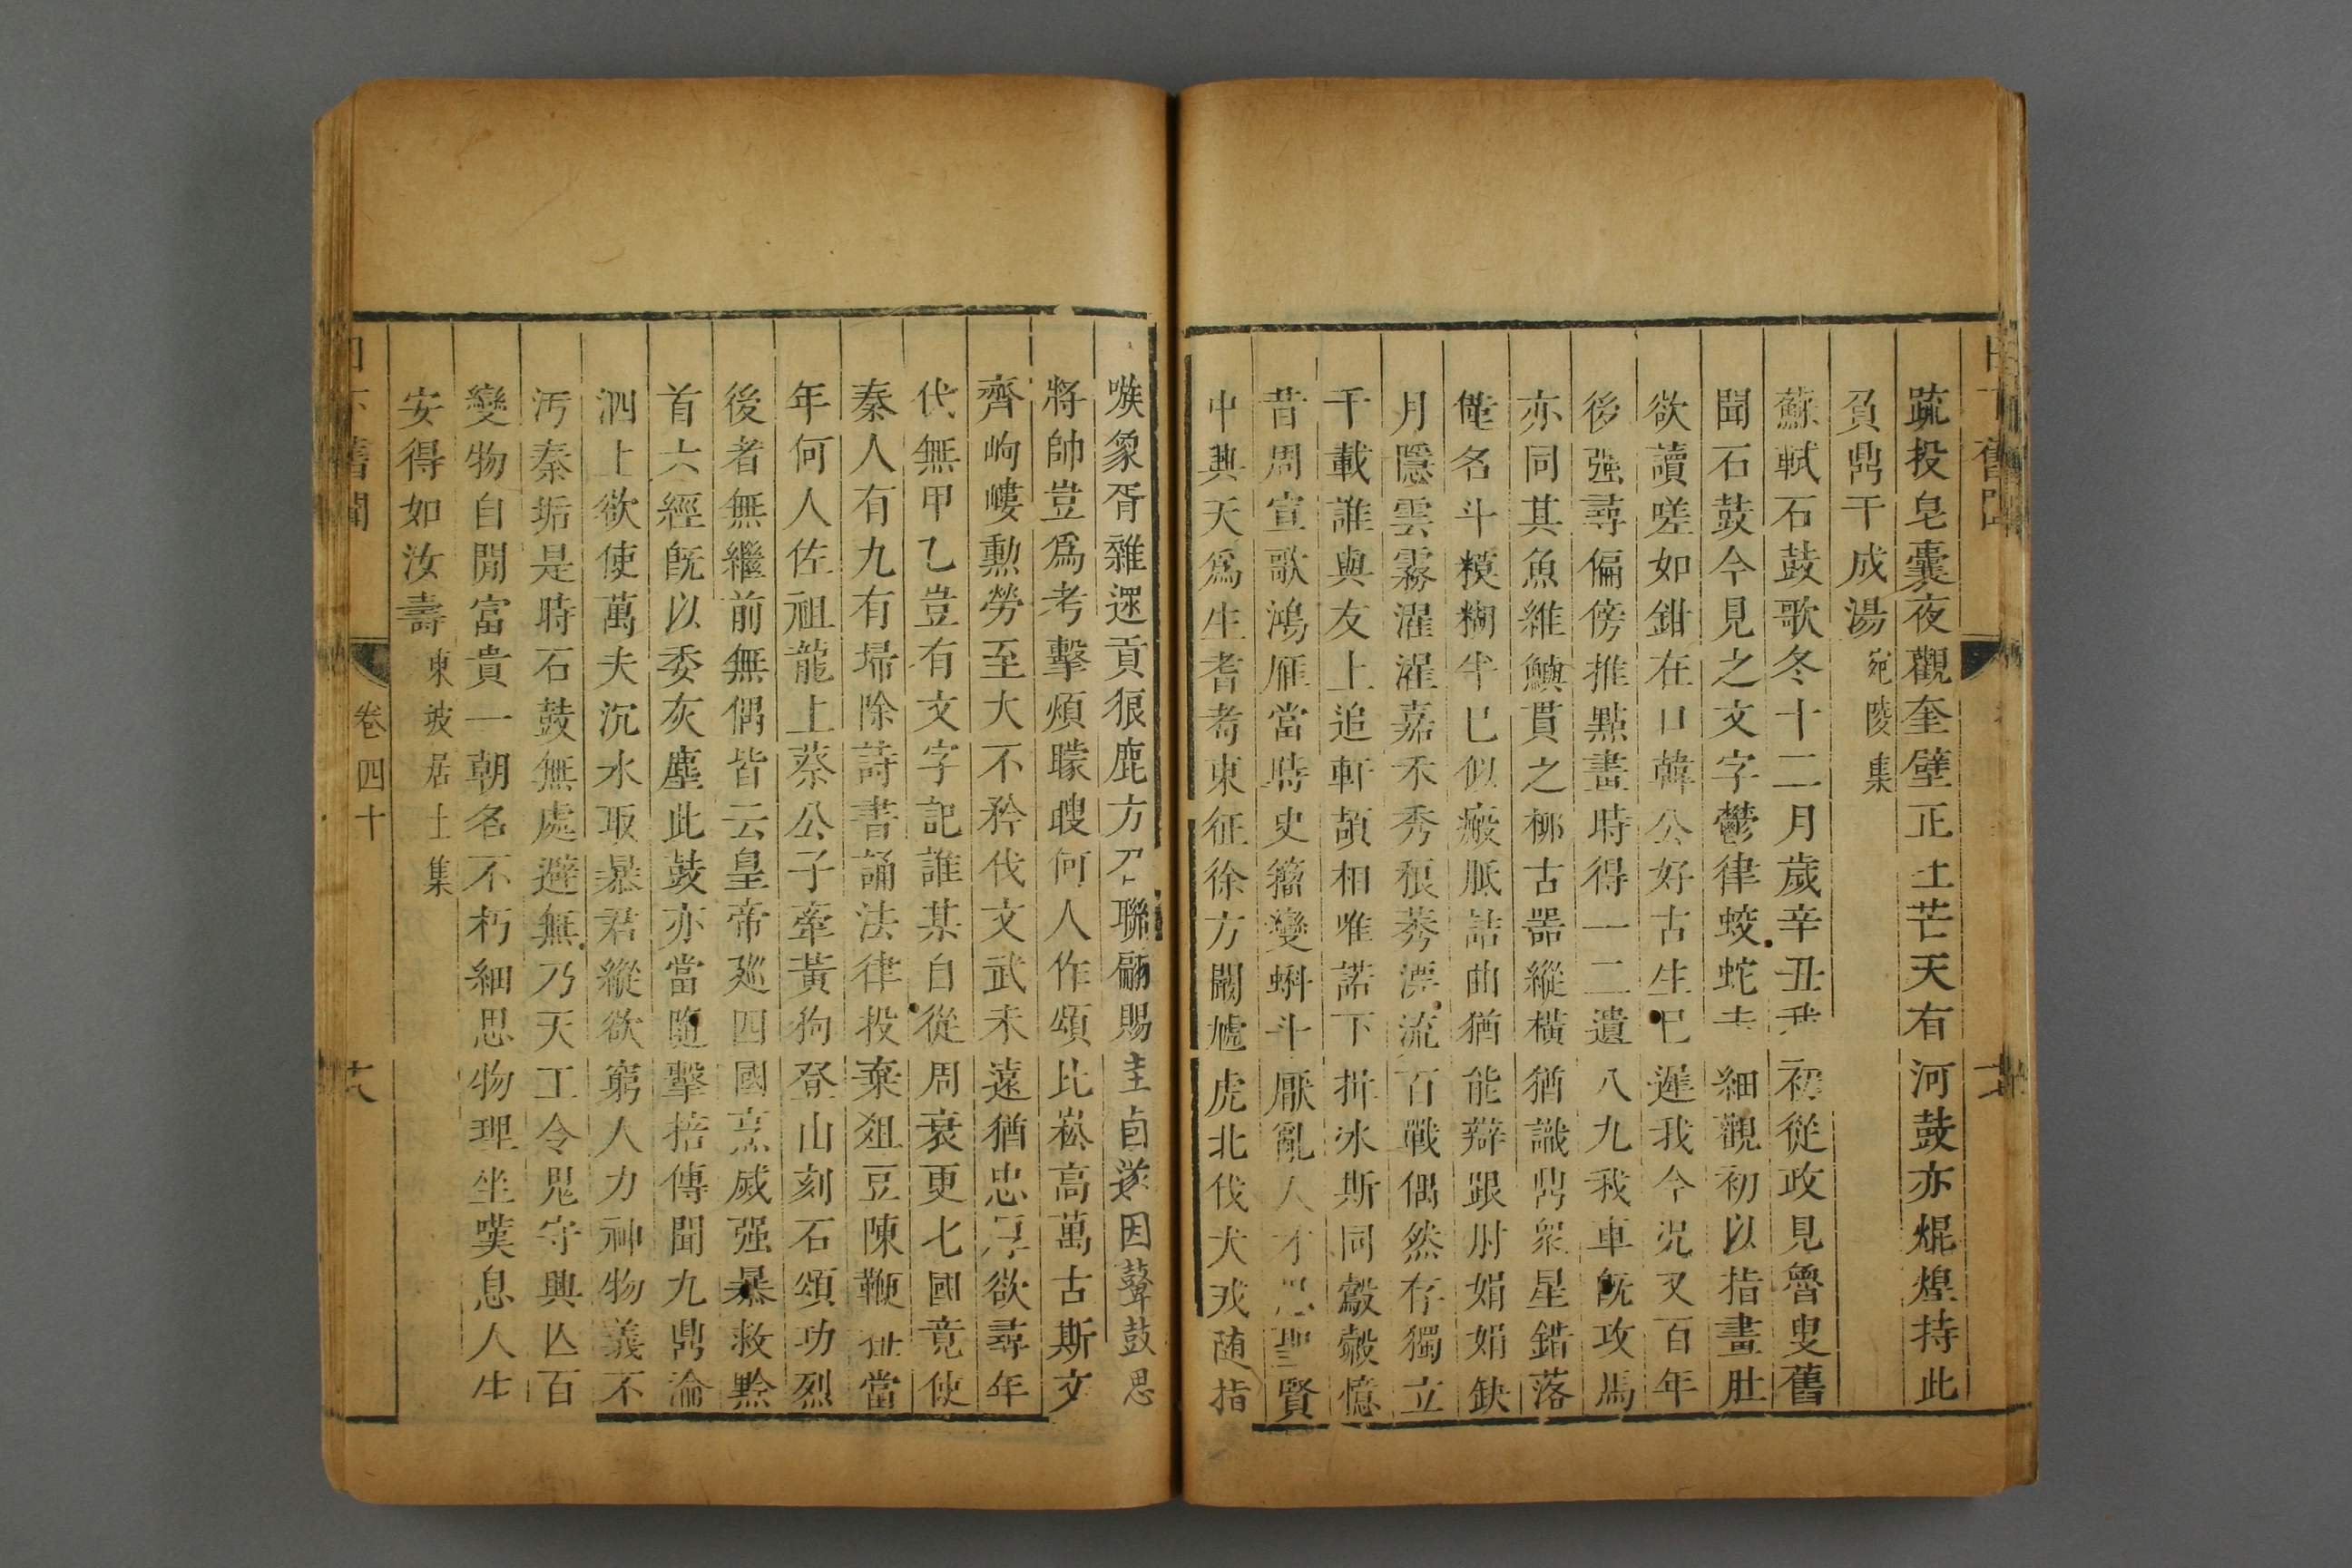 疏投皂囊夜觀奎壁正土芒天有河鼓亦焜煌持此
負鼎干成湯宛陵集
蘇軾石鼓歌冬十二月歲辛丑我初從政見魯叟舊
聞石鼓今見之文字鬱律蛟蛇走細觀初以指畫肚
欲讀嗟如鉗在口韓公好古生已遲我今況又百年
後强尋偏傍推點畫時得一二遺八九我車旣攻馬
亦同其魚維鱮貫之柳古器縱橫猶識鼎衆星錯落
僅名斗糢糊半已似瘢胝詰曲猶能辯跟肘娟娟缺
月隱雲霧濯濯嘉禾秀稂莠漂流百戰偶然存獨立
千載誰與友上追軒頡相唯諾下揖冰斯同鷇㝅憶
昔周宣歌鴻雁當時史籀變蝌斗厭亂人才思聖賢
中興天爲生耆耇東征徐方闞虓虎北伐犬戎随指
嗾象胥雜遝貢狼鹿方召聯翩賜圭卣遂因鼙鼓思
將帥豈爲考擊煩矇瞍何人作頌比崧高萬古斯文
齊岣嶁勲勞至大不矜伐文武未遠猶忠厚欲尋年
代無甲乙豈有文字記誰某自從周衰更七國竟使
秦人有九有埽除詩書誦法律投棄爼豆陳鞭杻當
年何人佐祖龍上蔡公子牽黃狗登山刻石頌功烈
後者無繼前無偶皆云皇帝廵四國烹烕强暴救黔
首六經旣以委灰塵此鼓亦當隨擊掊傳聞九鼎淪
泗上欲使萬夫沉水取暴君縱欲窮人力神物義不
汚秦垢是時石鼓無處避無乃天工令鬼守興亾百
變物自閒富貴一朝名不朽細思物理坐嘆息人生
安得如汝壽東坡居士集
舊聞
卷四十